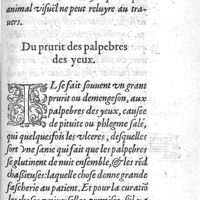 animal visuel ne peut reluyre au tra-
uers.
Du prurit des palpebres
des yeux.
IL se fait souuent vn grant
prurit ou demengeson, aux
palpebres des yeux, causée
de pituite ou phlegme salé,
qui quelquesfois les vlcere, desquelles
sort vne sanie qui fait que les palpebres
se glutinent de nuit ensemble, & les rēd
chaßieuses: laquelle chose donne grande
fascherie au patient. Et pour la curatiō